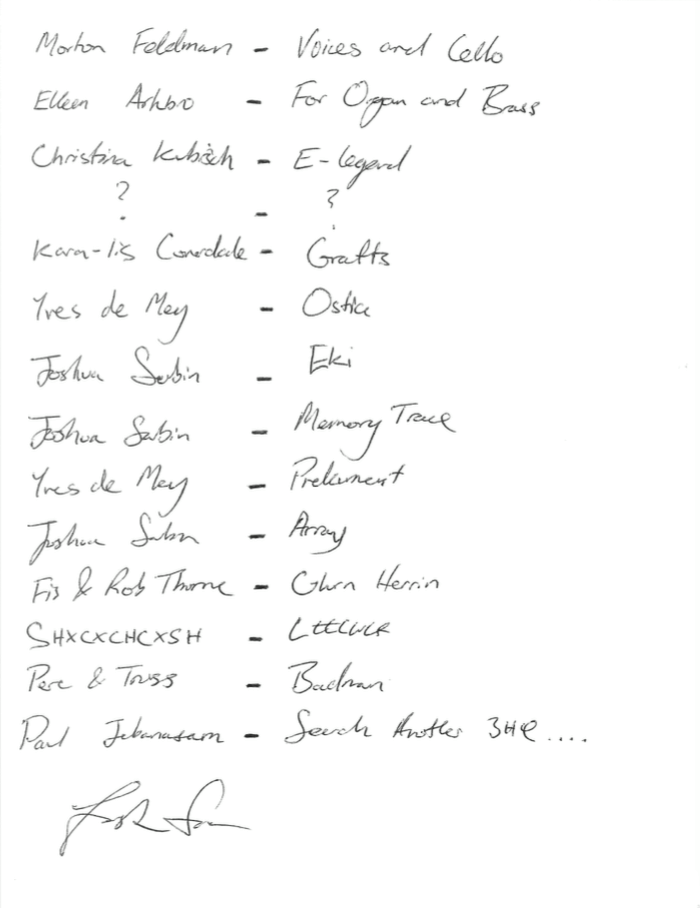 Morton Feldman - Voices and Cello
Ellen Arkbro - For Organ and Brass
Christina Kubisch - E-legend
? - ?
Kara-lis Coverdale - Grafts
Yves de Mey - Ostia
Joshua Sabin - Eki
Joshua Sabin - Memory Trace
Yves de Mey - Prelament
Joshua Sabin - Array
Fis & Rob Thorne - Glen Herrin
SHXCXCHCXSH - LttLWLR
Pere & Truss - Badman
Paul Jebanasam - Search Another 3HR....